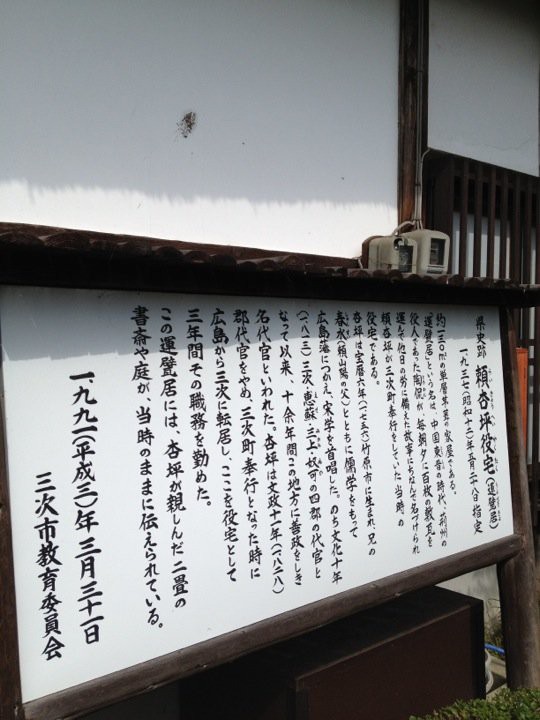 県史跡 頼杏坪役宅(運甓居)
一九三七(昭和十二)年五月二八日指定
約一三〇㎡の単層草葺の家屋である。
「運甓居」という名は、中国東晋の時代、荊州の
役人であった陶侃が、毎朝夕に百枚の敷瓦を
運んで他日の労に備えた故事にちなんで名づけられ
頼杏坪が三次町奉行をしていた当時の
役宅である。
杏坪は宝暦六年(一七五六)竹原市に生まれ、兄の
春水(頼山陽の父)とともに儒学をもって
広島藩につかえ、宋学を首唱した。のち文化十年
(一八一三)三次・恵蘇・三上・奴可の四郡の代官と
なって以来、十余年間この地方に善政をしき
名代官といわれた。杏坪は文政十一年(一八二八)
郡代官をやめ、三次町奉行となった時に
広島から三次に転居し、ここを役宅として
三年間その職務を勤めた。
この運甓居には、杏坪が親しんだ二畳の
書斎や庭が、当時のままに伝えられている。
一、九九一(平成三)年 三月三十一日
三次市教育委員会